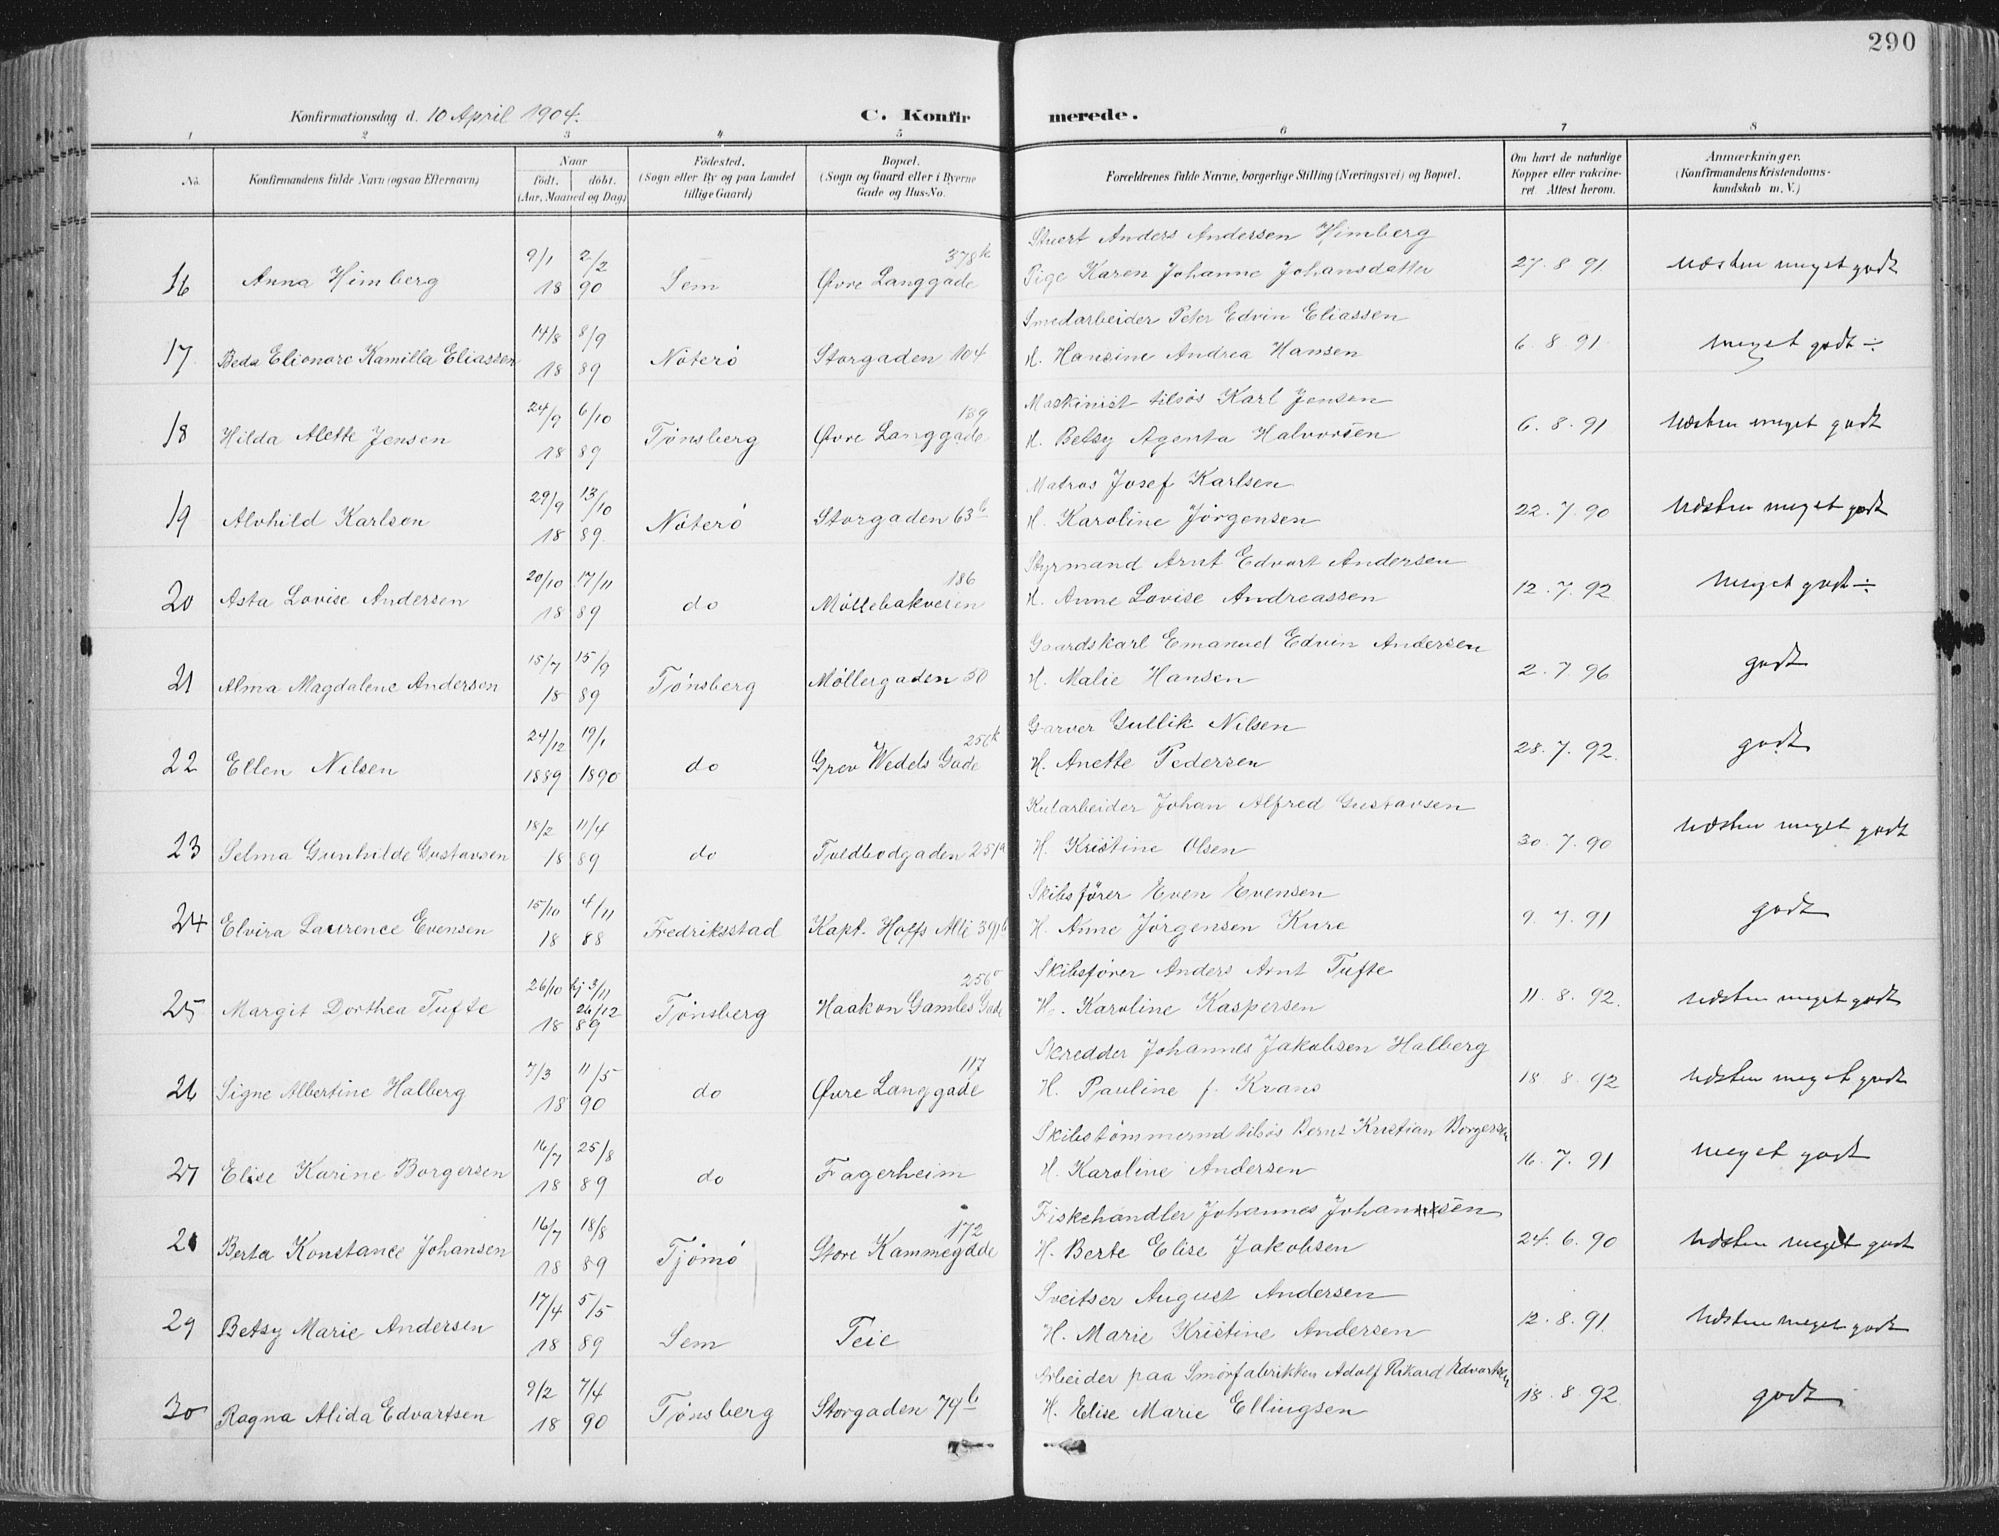 290
Konfirmationsdag d. 10 April 1904.
C. Konfirmerede.
1 2 3 4 5 6 7 8
No. | Konfirmandens fulde Navn (ogsaa Efternavn) | Naar födt. döbt. (Aar, Maaned og Dag) | Födested. (Sogn eller By og paa Landet tillige Gaard) | Bopæl. (Sogn og Gaard eller i Byerne Gade og Hus-No. | Forældrenes fulde Navne, borgerlige Stilling (Næringsvei) og Bopæl. | Om havt de naturlige Kopper eller vakcineret. Attest herom. | Anmærkninger. (Konfirmandens Kristendomskundskab m. V.)
9/1 2/2 378k Anders Andersen Himberg
16 Anna Himberg 18 90 Sem Øvre Langgade Pige Karen Johanne Johansdatter 27.8.91 næsten meget godt
14/8 8/9 Smedarbeider Peter Edvin Eliassen
17 Beda Elionore Kamilla Eliassen 18 89 Nøterø Storgaden 104 H. Hansine Andrea Hansen 6.8.91 meget godt ÷
24/9 6/10 189 Maskinist tilsøs Karl Jensen
18 Hilda Alette Jensen 18 89 Tønsberg Øvre Langgade H. Betsy Agenta Halvorsen 6.8.91 næsten meget godt
29/9 13/10 Matros Josef Karlsen
19 Alvhild Karlsen 18 89 Nøterø Storgaden 63b H. Karoline Jørgensen 22.7.90 næsten meget godt
20/10 17/11 186 Styrmand Arnt Edvart Andersen
20 Asta Lovise Andersen 18 89 do Møllebakveien H. Anne Lovise Andreassen 12.7.92 meget godt ÷
15/7 15/9 Gaardskarl Emanuel Edvin Andersen
21 Alma Magdalene Andersen 18 89 Tønsberg Møllergaden 50 H. Malie Hansen 2.7.96 godt
24/12 19/1 256k Garver Gullik Nilsen
22 Ellen Nilsen 1889 1890 do Grev Wedels Gade H. Anette Pedersen 28.7.92 godt
18/2 11/4 Kularbeider Johan Alfred Gustavsen
23 Selma Gunhilde Gustavsen 18 89 do Toldbodgaden 251a H. Kristine Olsen 30.7.90 næsten meget godt
15/10 4/11 Skibsfører Even Evensen
24 Elvira Laurence Evensen 18 88 Fredriksstad Kapt. Hoffs Alle 391b H. Anne Jørgensen Kure 9.7.91 godt
26/10 hj 3/11 256 Skibsfører Anders Arnt Tufte
25 Margit Dorthea Tufte 18 26/12 89 Tønsberg Haakon Gamles Gade H. Karoline Kaspersen 11.8.92 næsten meget godt
7/3 11/5 117 Skredder Johannes Jakobsen Halberg
26 Signe Albertine Halberg 18 90 do Øvre Langgade H. Pauline f. Krans 18 8.92 næsten meget godt
16/7 25/8 Skibstømmermd tilsøs Bernt Kristian Borgersen
27 Elise Karine Borgersen 18 89 do Fagerheim H. Karoline Andersen 16.7.91 meget godt
16/7 18/8 172 Fiskehandler Johannes Johansen
28 Berta Konstance Johansen 18 89 Tjømø Store Kammegade H. Berte Elise Jakobsen 24.6.90 næsten meget godt
17/4 5/5 Sveitser August Andersen
29 Betsy Marie Andersen 18 89 Sem Teie H. Marie Kristine Andersen 12.8.91 næsten meget godt
9/2 7/4 Arbeider paa Smørfabrikken Adolf Rikard Edvartsen
30 Ragna Alida Edvartsen 18 90 Tønsberg Storgaden 79b H. Elise Marie Ellingsen 18.8.92 godt